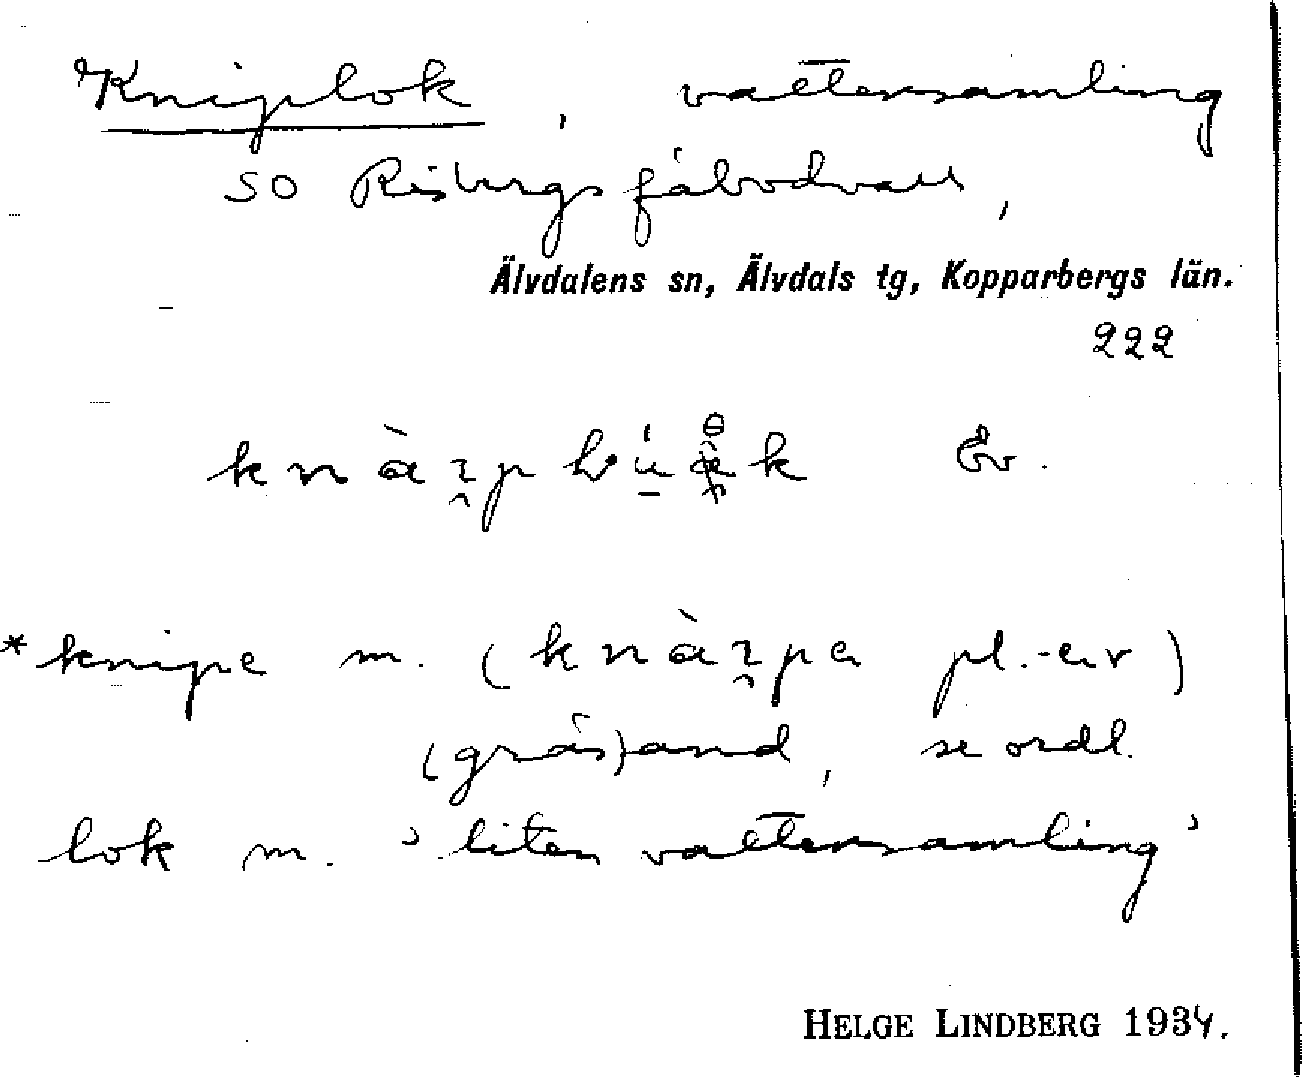 Kniplok, vattensamling
SO Risbergs fäbodvall,
Älvdalens sn, Älvdals tg, Kopparbergs län.
222
Ev.
*knipa m. (knàı̯pa pl. -ar)
(gräs)and, se ordl.
lok m. 'liten vattensamling'
HELGE LINDBERG 1934.